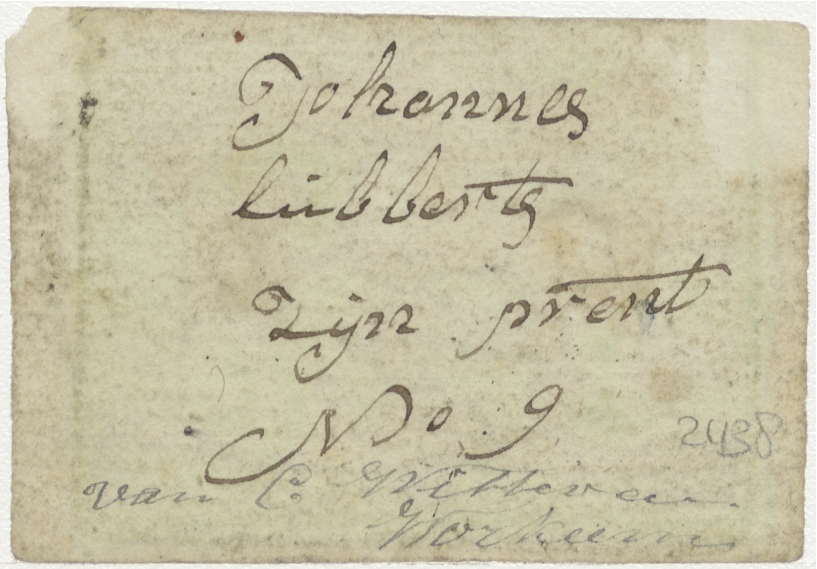 Johannes
lubberts
Zijn prent
No 9
2438
van C Witteveen
Workum